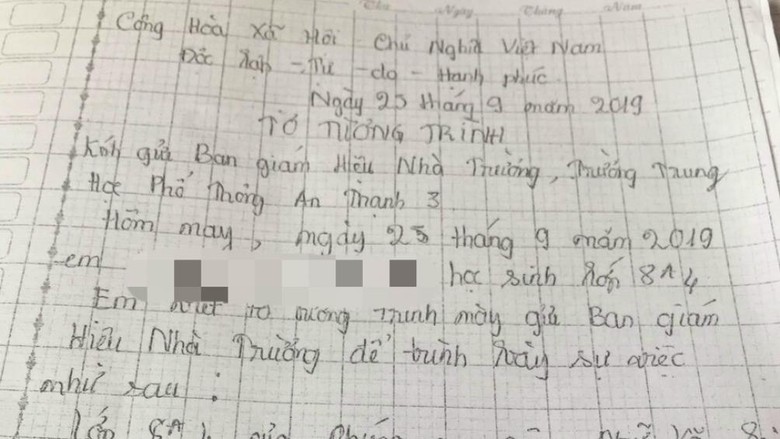 Thứ Ngày Tháng Năm
Cộng Hòa Xã Hội Chủ Nghĩa Việt Nam
Độc lập - Tự - do - Hạnh phúc
Ngày 25 tháng 9 năm 2019
TỜ TƯỜNG TRÌNH
Kính gửi Ban giám Hiệu Nhà Trường, Trường Trung
Học Phổ Thông An Thạnh 3
Hôm nay, ngày 25 tháng 9 năm 2019
em học sinh lớp 8A4
Em viết tờ tường trình này gửi Ban giám
Hiệu Nhà Trường để trình bày sự việc
như sau :
lớp 8A